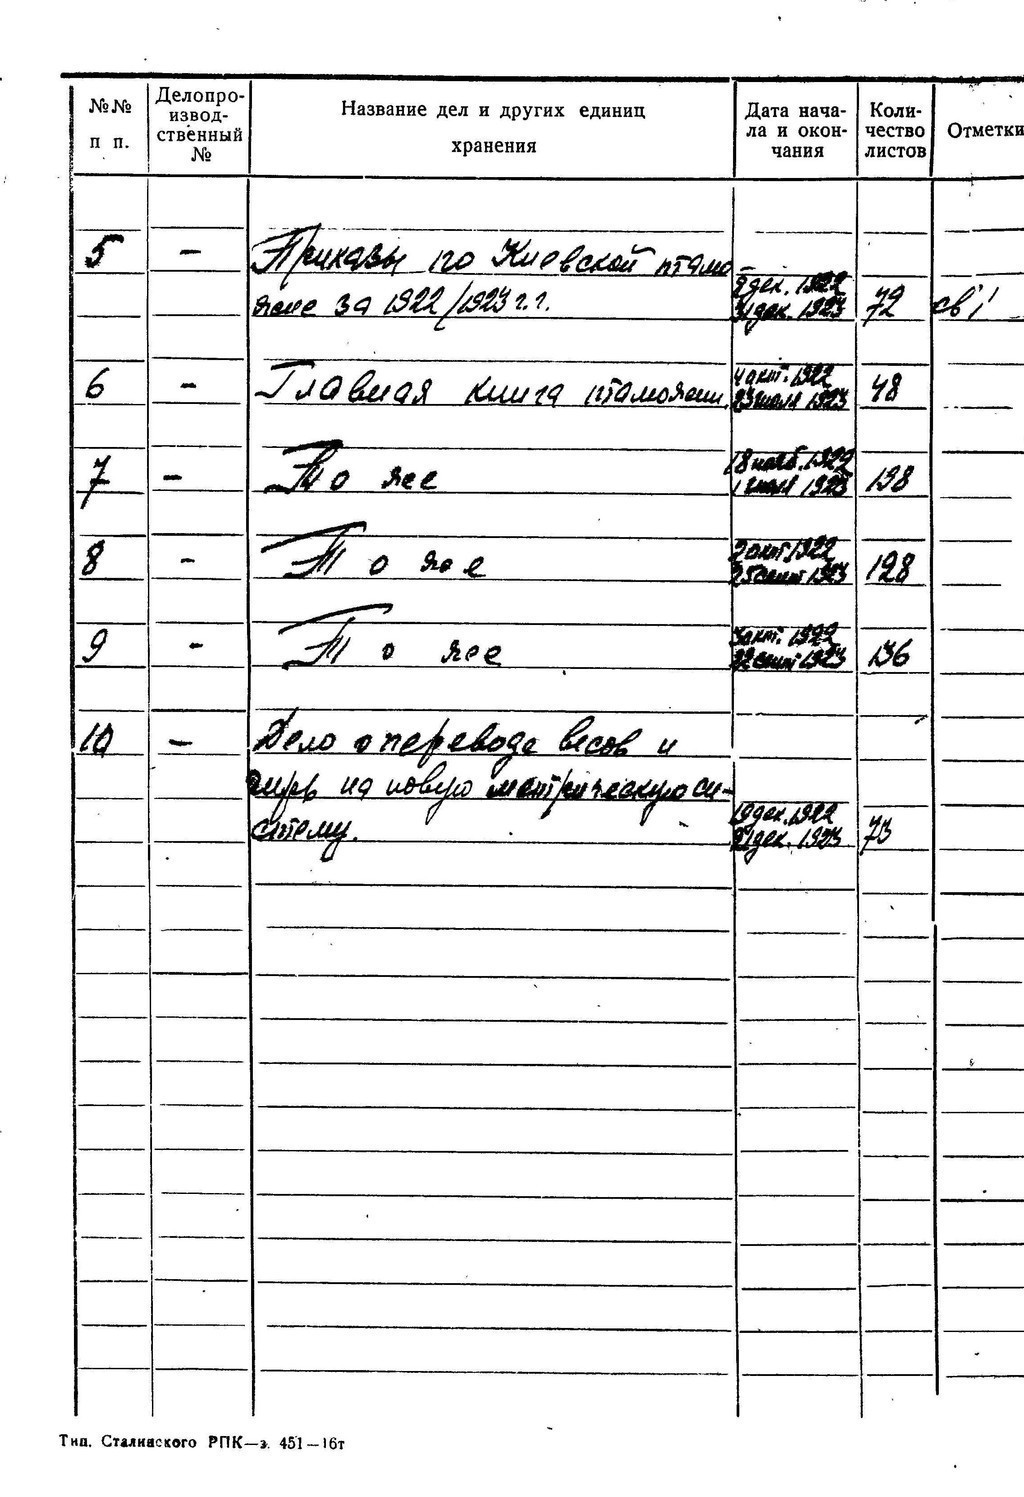 №№ п п. Делопроизводственный № Название дел и других единиц хранения Дата начала и окончания Количество листов Отметки
5 - Приказы по Киевской тамо
жне за 1922/1923 г.г. 2 дек. 1922 31 дек. 1923 72 св 1
6 - Главная книга таможни. 4 окт. 1922 23 июля 1923 48
7 - То же 18 нояб. 1922 1 июля 1923 198
8 - То же 2 окт 1922 25 сент 1923 128
9 - То же 3 окт. 1922 22 сент 1923 136
10 - Дело о переводе весов и
гирь на новую метрическую си-
стему. 19 дек. 1922 21 дек. 1923 73
Тип. Сталинского РПК—з. 451—16т